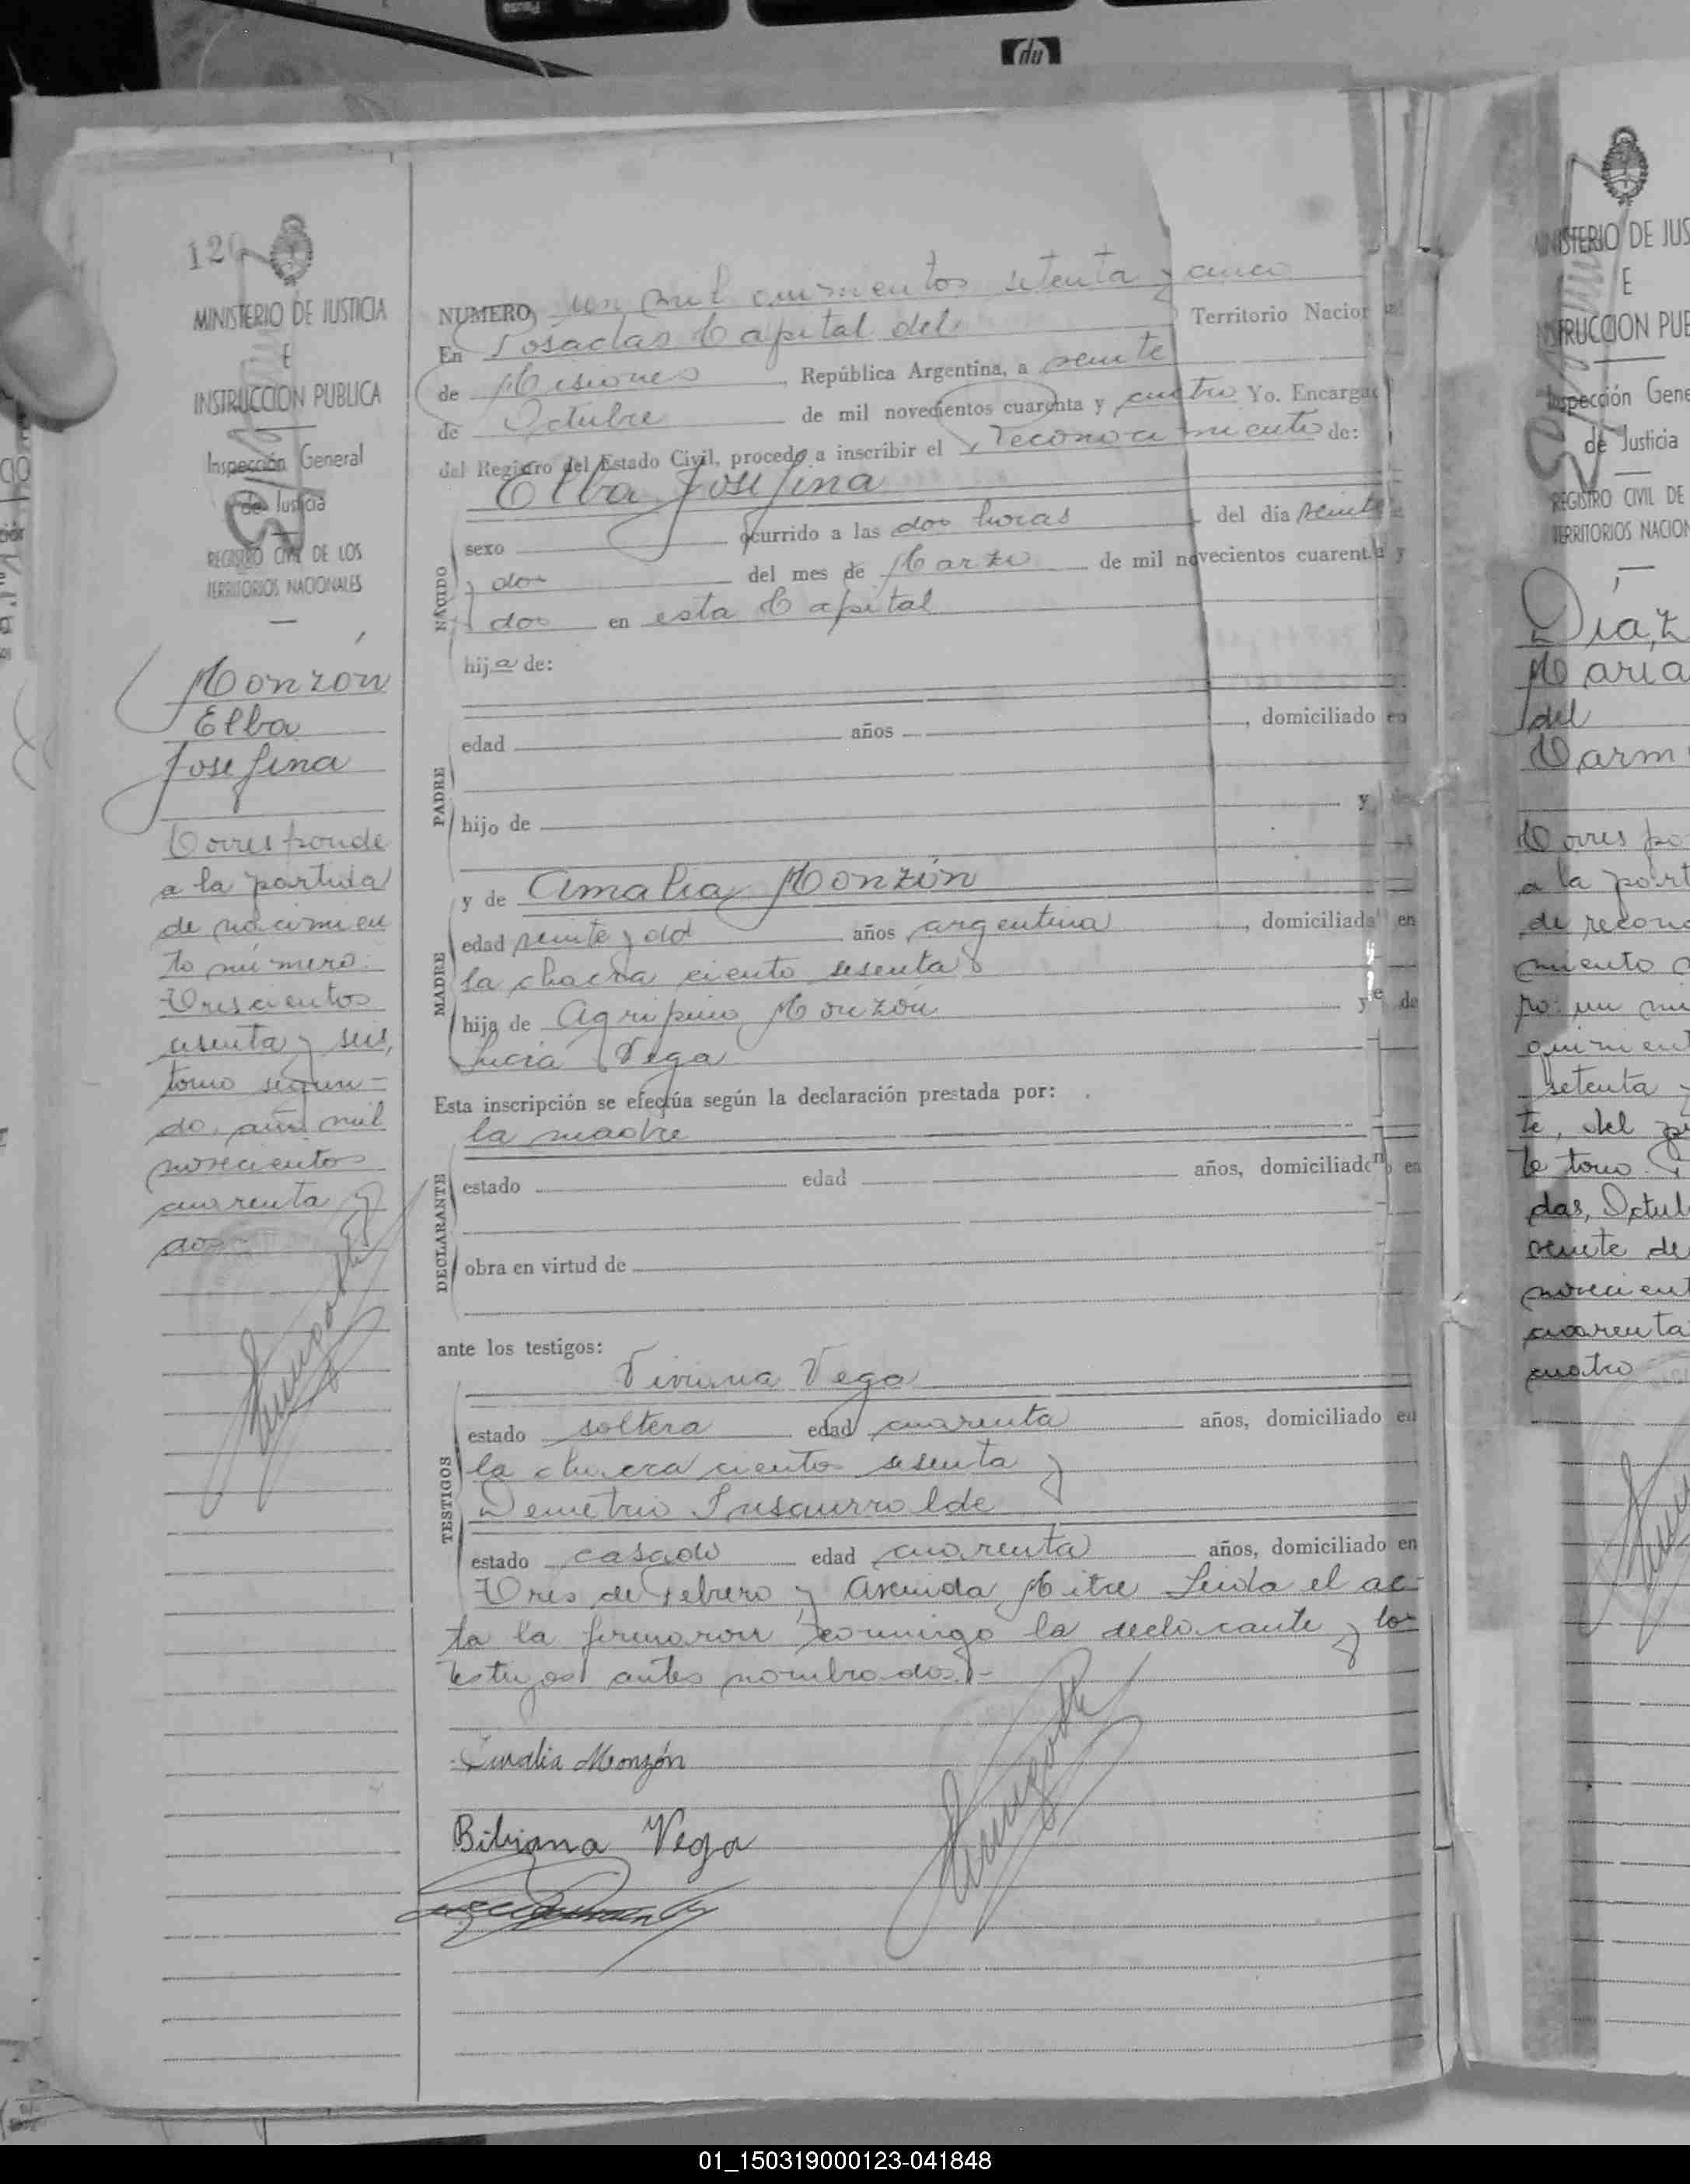 Pausa
hp
120
MINISTERIO DE JUSTICIA
E
INSTRUCCION PUBLICA
Inspección General
de Justicia
REGISTRO CIVIL DE LOS
TERRITORIOS NACIONALES
Monzón
Elba
Josefina
Corresponde
a la partida
de nacimien
to número:
Trescientos
sesenta y seis,
tomo segun-
do, año mil
novecientos
cuarenta y
dos.
NUMERO un mil quinientos setenta y cinco
En Posadas Capital del Territorio Nacional
de Misiones, República Argentina, a veinte
de Octubre de mil novecientos cuarenta y cuatro Yo. Encargado
del Registro del Estado Civil, procedo a inscribir el reconocimiento de:
Elba Josefina
NACIDO
sexo ocurrido a las dos horas del día veinte
y dos del mes de Marzo de mil novecientos cuarenta y
dos en esta Capital
hija de:
PADRE
edad años , domiciliado en
hijo de y de
y de Amalia Monzón
MADRE
edad veinte y dos años argentina, domiciliada en
la chacra ciento sesenta
hija de Agripino Monzón y de
Lucia Vega
Esta inscripción se efectúa según la declaración prestada por:
la madre
DECLARANTE
estado edad años, domiciliado en
obra en virtud de
ante los testigos:
Viviana Vega
TESTIGOS
estado soltera edad cuarenta años, domiciliado en
la chacra ciento sesenta y
Demetrio Insaurralde
estado casado edad cuarenta años, domiciliado en
Tres de Febrero y Avenida Mitre Leida el ac-
ta la firmaron conmigo la declarante y los
testigos antes nombrados.-
Amalia Monzón
Bibiana Vega
MINISTERIO DE JUS
E
TRUCCION PUB
Inspección Gene
de Justicia
REGISTRO CIVIL DE
TERRITORIOS NACION
Díaz
Maria
del
Carm
Corres po
a la part
de recono
miento
ro: un mi
quinient
setenta y
te, del
te tomo.
das, Octub
veinte de
novecient
cuarenta
cuatro
01_150319000123-041848